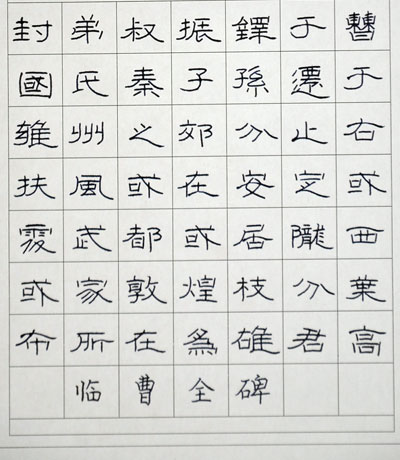 封弟叔振鐸于曹
國氏秦子孫遷于
雍州之郊分止右
扶風或在安定或
處武都或居隴西
或家敦煌枝分葉
布所在爲雄君高
临曹全碑